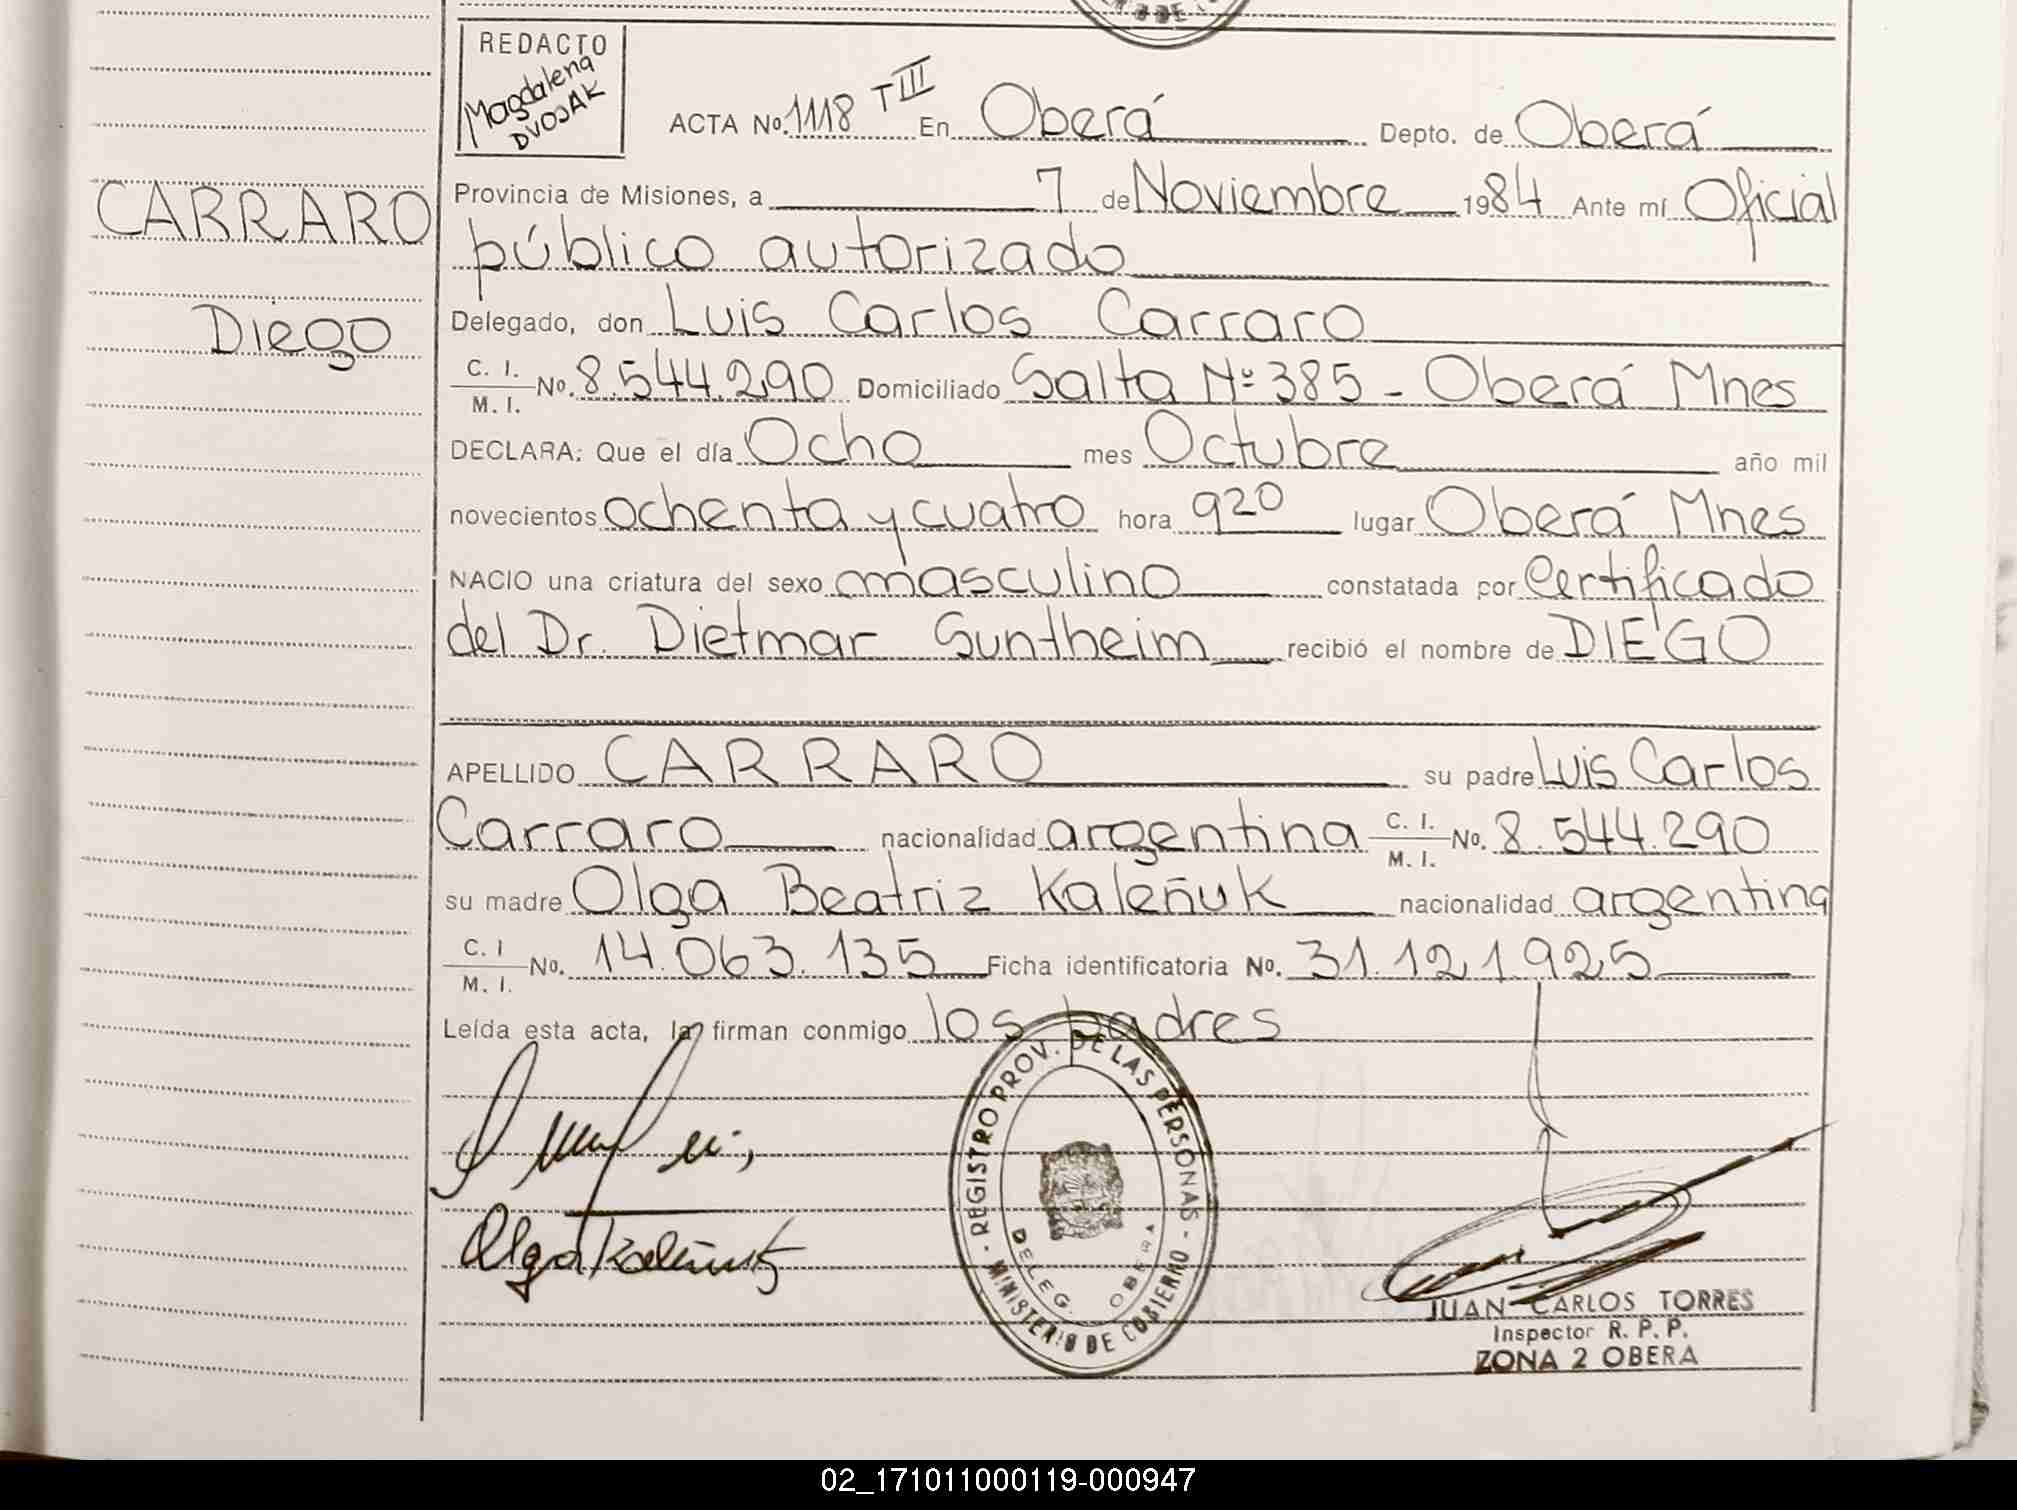 REDACTO
Magdalena
DVOJAK
ACTA No. 1118 T III En Oberá Depto. de Oberá
CARRARO
Diego
Provincia de Misiones, a 7 de Noviembre 1984 Ante mí Oficial
público autorizado
Delegado, don Luis Carlos Carraro
C. I. / M. I. No. 8.544.290 Domiciliado Salta Nº 385 - Oberá Mnes
DECLARA: Que el día Ocho mes Octubre año mil
novecientos ochenta y cuatro hora 920 lugar Oberá Mnes
NACIO una criatura del sexo masculino constatada por Certificado
del Dr. Dietmar Suntheim recibió el nombre de DIEGO
APELLIDO CARRARO su padre Luis Carlos
Carraro nacionalidad argentina C. I. / M. I. No. 8.544.290
su madre Olga Beatriz Kaleñuk nacionalidad argentina
C. I / M. I. No. 14.063.135 Ficha identificatoria No. 31.121.925
Leída esta acta, la firman conmigo los padres
Olga Kaleñuk
- REGISTRO PROV. DE LAS PERSONAS -
MINISTERIO DE GOBIERNO
DELEG. OBERA
JUAN CARLOS TORRES
Inspector R. P. P.
ZONA 2 OBERA
02_171011000119-000947